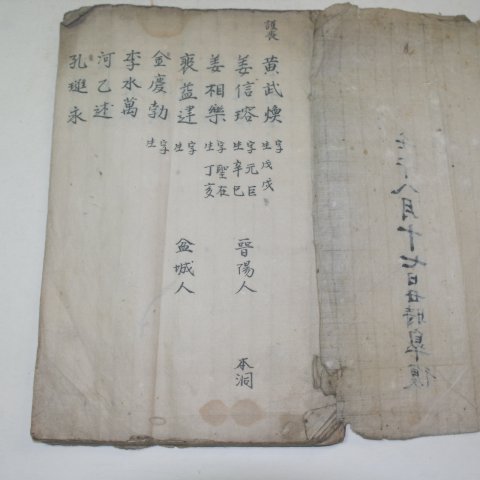 護喪
黃武煥 字 生戊戌
姜信瑢 字元臣 生辛巳 晉陽人 本洞
姜相樂 字聖在 生丁亥
裵益達 字 生 盆城人
金慶勃 字 生
李水萬
河乙述
孔璡永
八月十七日